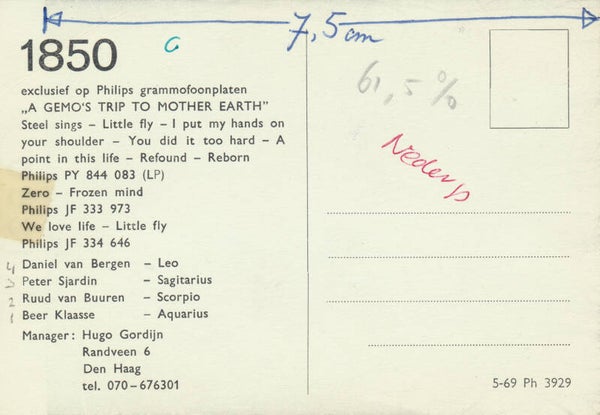 7,5 cm
1850
exclusief op Philips grammofoonplaten
„A GEMO'S TRIP TO MOTHER EARTH”
Steel sings – Little fly – I put my hands on
your shoulder – You did it too hard – A
point in this life – Refound – Reborn
Philips PY 844 083 (LP)
Zero – Frozen mind
Philips JF 333 973
We love life – Little fly
Philips JF 334 646
4 Daniel van Bergen – Leo
3 Peter Sjardin – Sagitarius
2 Ruud van Buuren – Scorpio
1 Beer Klaasse – Aquarius
Manager: Hugo Gordijn
Randveen 6
Den Haag
tel. 070–676301
61,5 %
Nederp
5-69 Ph 3929